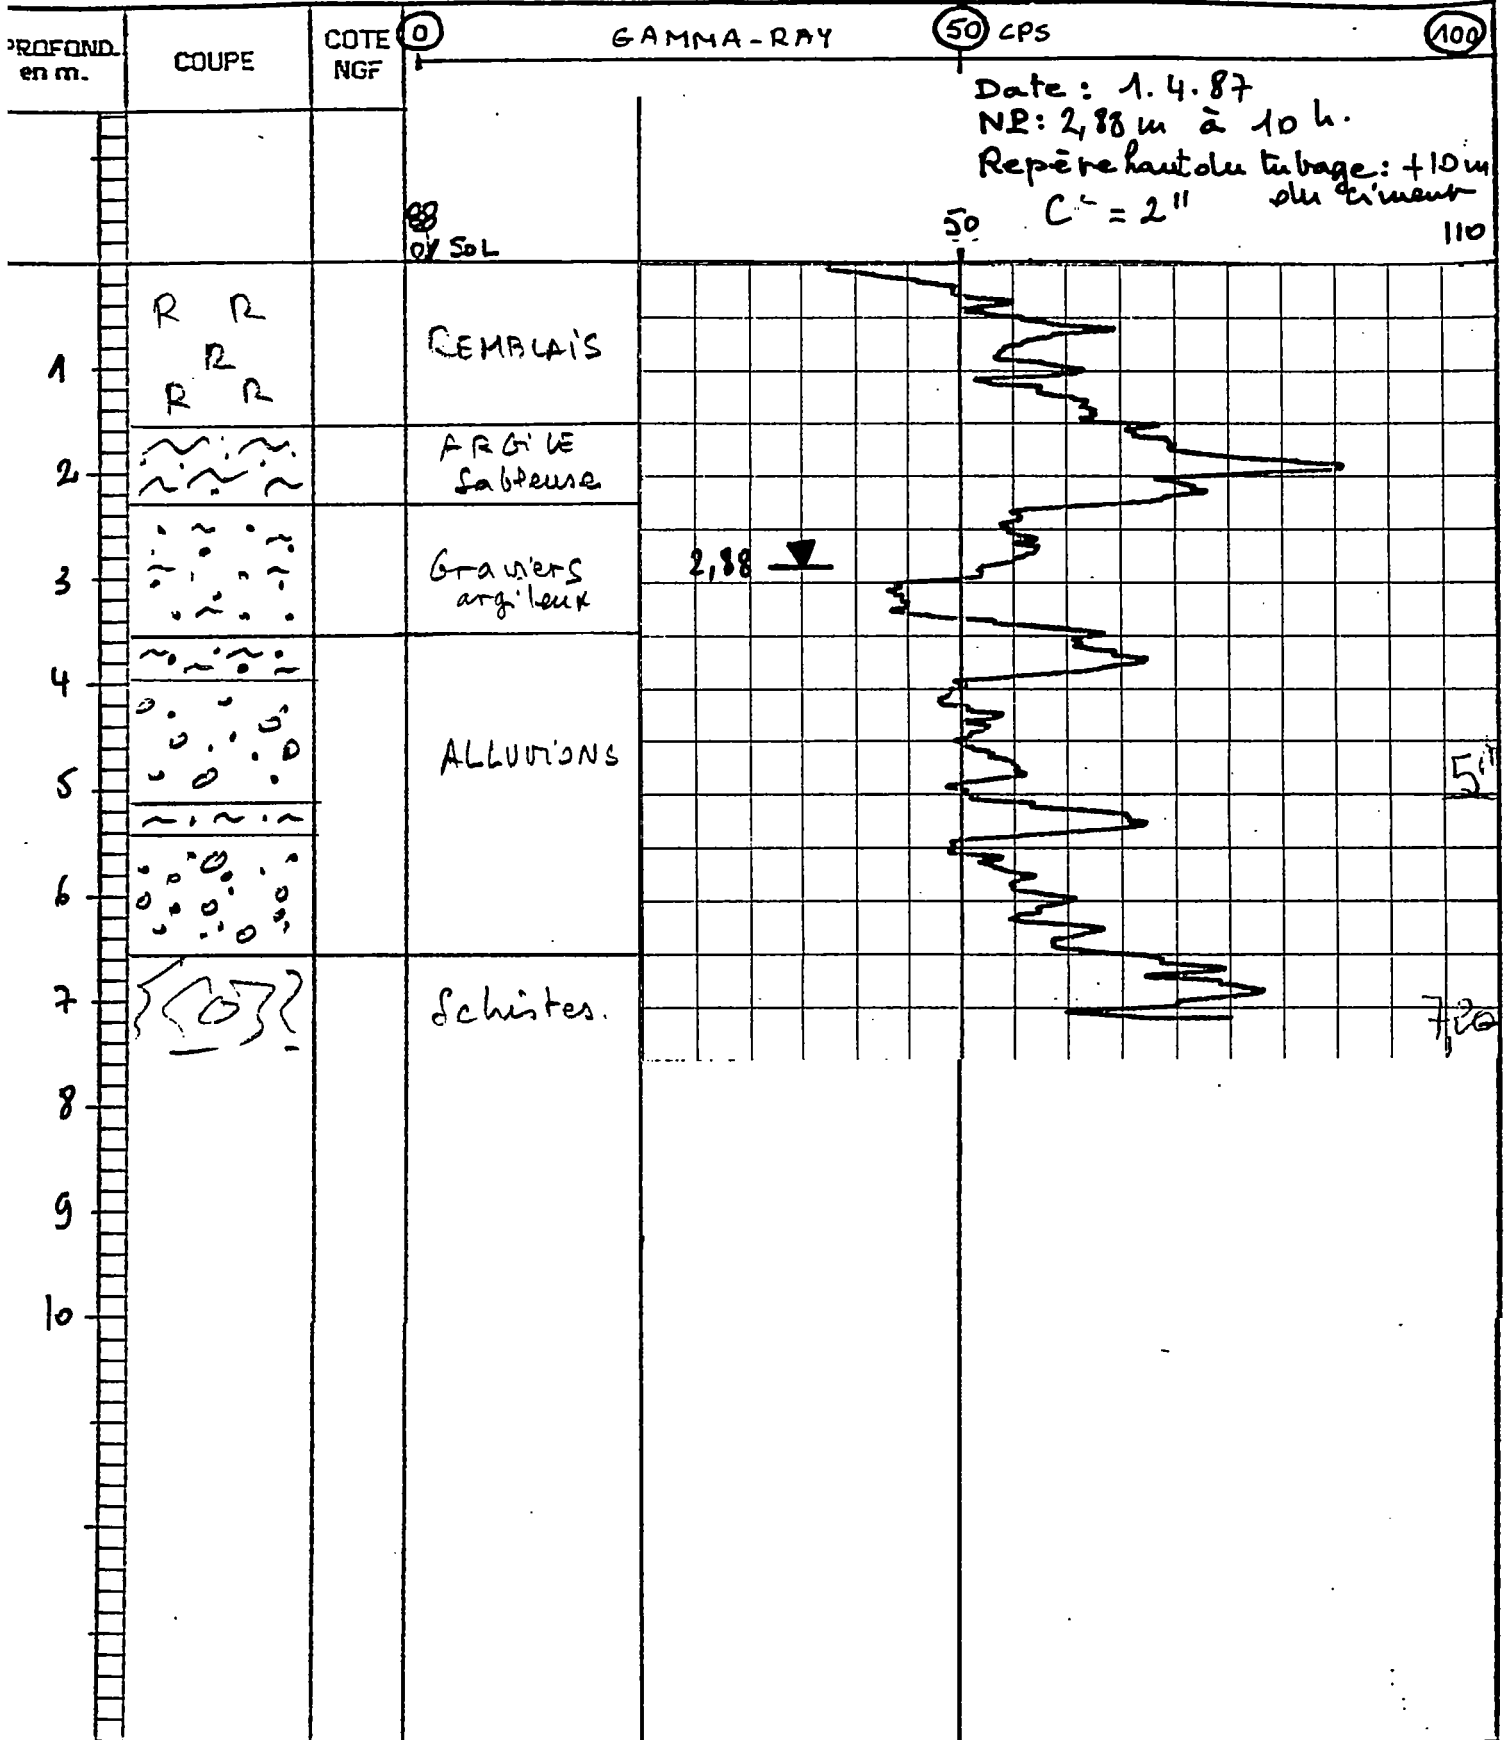 PROFOND. en m.
COUPE
COTE NGF
0 GAMMA-RAY 50 CPS 100
Date : 1.4.87
NP: 2,88 m à 10 h.
Repère haut du tubage : +10 m
du ciment
= 2"
50
110
SOL
R R
R
R R
REMBLAIS
1
ARGILE
Sableuse
2
Graviers
argileux
2,88
3
4
ALLUVIONS
5
5
6
Schistes.
7
7,20
8
9
10